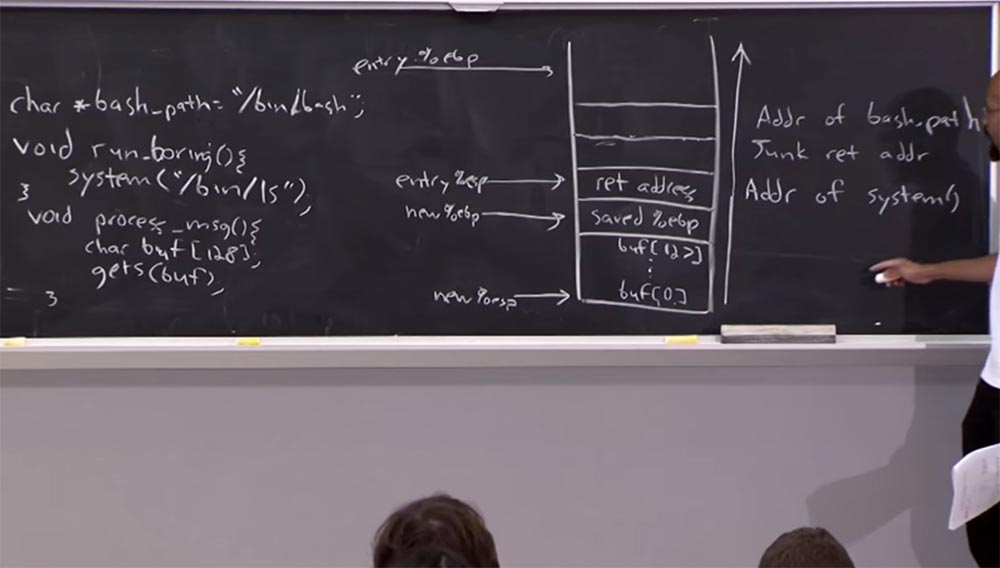 char *bash_path= "/bin/bash";
void run_boring(){
system("/bin/ls");
}
void process_msg(){
char buf[128];
gets(buf);
}
entry %ebp
entry %esp
new %ebp
new %esp
ret address
saved %ebp
buf[127]
⋮
buf[0]
Addr of bash_path
Junk ret addr
Addr of system()